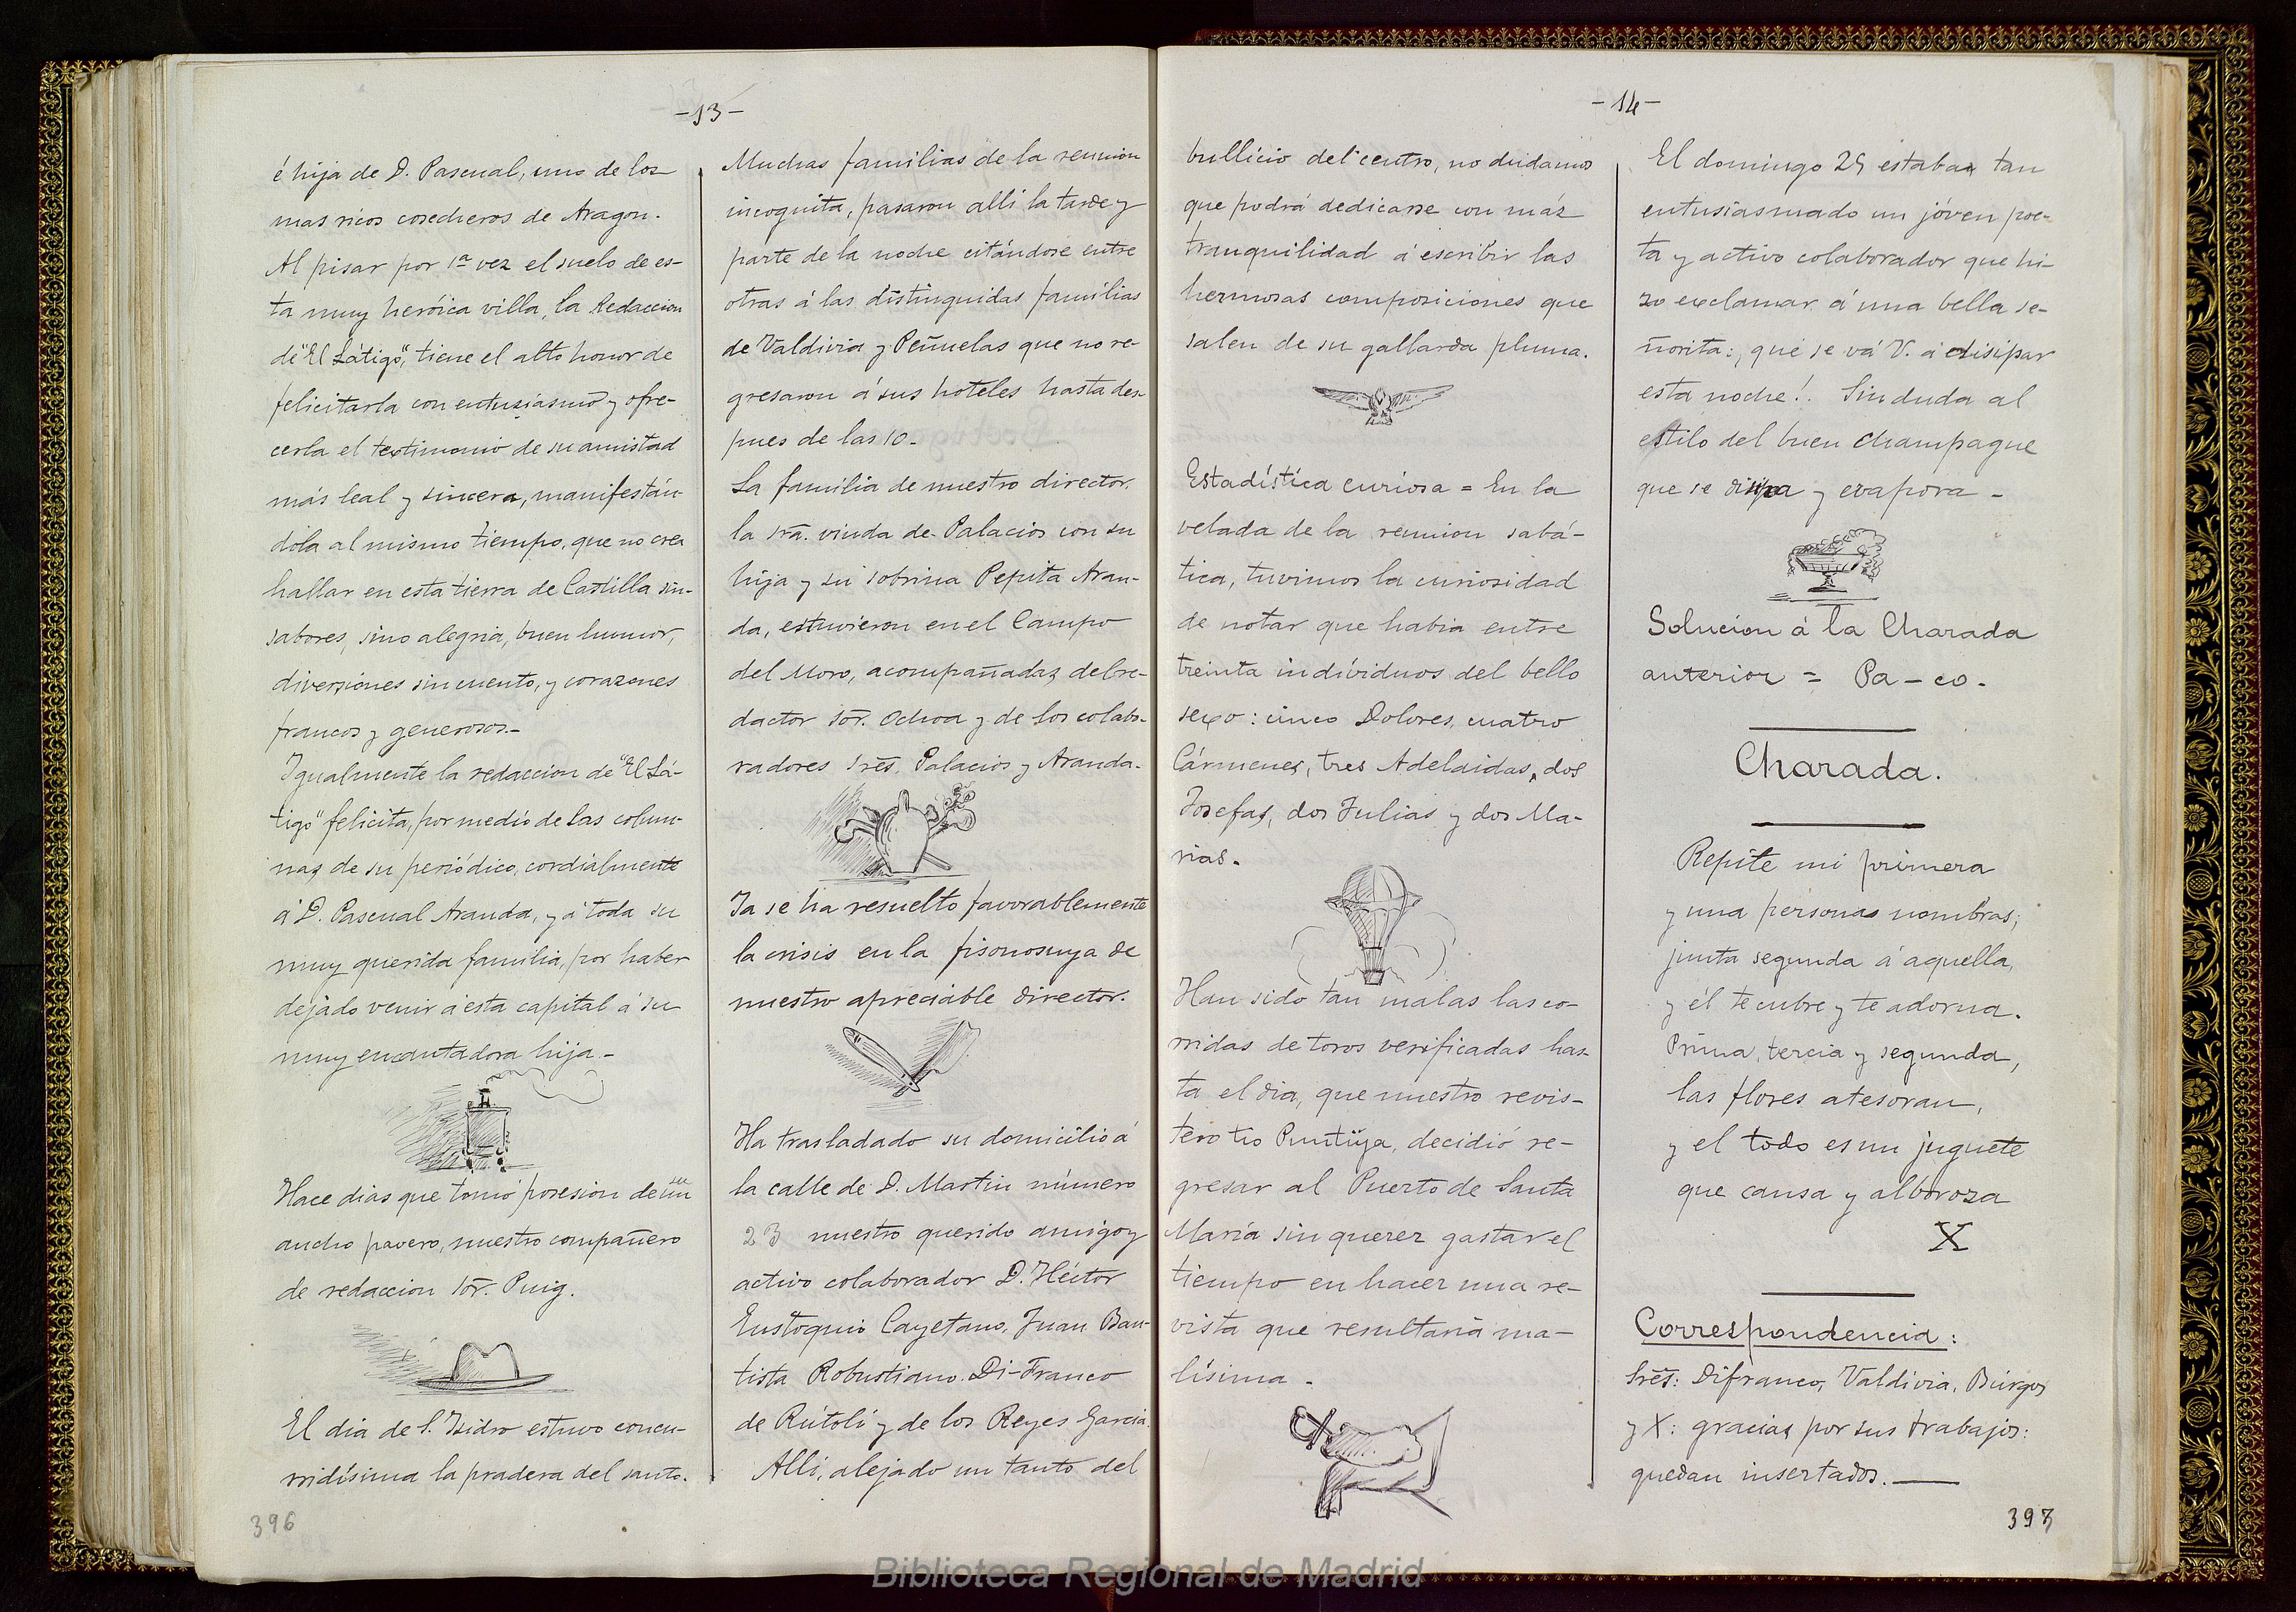 -13-
é hija de D. Pascual, uno de los
mas ricos cosecheros de Aragon.
Al pisar por 1ª vez el suelo de es-
ta muy heróica villa, la Redaccion
de "El Látigo", tiene el alto honor de
felicitarla con entusiasmo y ofre-
cerla el textimonio de su amistad
más leal y sincera, manifestán-
dola al mismo tiempo, que no crea
hallar en esta tierra de Castilla sin-
sabores, sino alegria, buen humor,
diversiones sin cuento, y corazones
francos y generosos.-
Igualmente la redaccion de "El Lá-
tigo" felicita, por medio de las colum-
nas de su periódico, cordialmente
á D. Pascual Aranda, y á toda su
muy querida familia, por haber
dejado venir á esta capital á su
muy encantadora hija.-
Hace dias que tomó posesion de un
ancho pavero, nuestro compañero
de redaccion Sor. Puig.
El dia de S. Isidro estuvo concu-
rridísima la pradera del santo.
396
Muchas familias de la reunion
incognita, pasaron alli la tarde y
parte de la noche citándose entre
otras á las distinguidas familias
de Valdivia y Peñuelas que no re-
gresaron á sus hoteles hasta des-
pues de las 10.
La familia de nuestro director.
la sra. viuda de Palacios con su
hija y su sobrina Pepita Aran-
da, estuvieron en el Campo
del Moro, acompañadas del re-
dactor Sor. Ochoa y de los colabo-
radores Sres. Palacios y Aranda.
Ya se ha resuelto favorablemente
la crisis en la fisonosuya de
nuestro apreciable director.
Ha trasladado su domicilio á
la calle de D. Martin número
23 nuestro querido amigo y
activo colaborador D. Héctor
Eustoquio Cayetano, Juan Bau-
tista Robustiano Di-Franco
de Rútoli y de los Reyes Garcia.
Alli, alejado un tanto del
-14-
bullicio del centro, no dudamos
que podrá dedicarse con más
tranquilidad á escribir las
hermosas composiciones que
salen de su gallarda pluma.
Estadística curiosa = En la
velada de la reunion sabá-
tica, tuvimos la curiosidad
de notar que habia entre
treinta indíviduos del bello
sexo: cinco Dolores, cuatro
Cármenes, tres Adelaidas, dos
Josefas, dos Julias y dos Ma-
rias.
Han sido tan malas las co-
rridas de toros verificadas has-
ta el dia, que nuestro revis-
tero tio Puntiya, decidió re-
gresar al Puerto de Santa
María sin querer gastar el
tiempo en hacer una re-
vista que resultaria ma-
lísima.
El domingo 25 estaba tan
entusiasmado un jóven poe-
ta y activo colaborador que hi-
zo exclamar á una bella se-
ñorita: ¡que se vá V. á disipar
esta noche!. Sin duda al
estilo del buen champagne
que se disipa y evapora -
Solucion á la Charada
anterior = Pa-co.
Charada.
Repite mi primera
y una personas nombras;
junta segunda á aquella,
y él te cubre y te adorna.
Prima, tercia y segunda,
las flores atesoran,
y el todo es un juguete
que causa y alboroza
X
Correspondencia:
Sres: Difranco, Valdivia, Búrgos
y X: gracias por sus trabajos:
quedan insertados.
397
Biblioteca Regional de Madrid